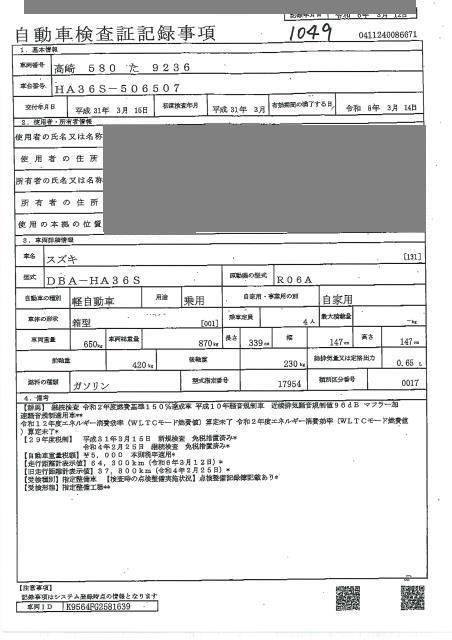 記録年月日 令和 6年 3月 12日
自動車検査証記録事項 1049 0411240086671
1. 基本情報
車両番号 高崎 580 た 9236
車台番号 HA36S-506507
交付年月日 平成31年 3月 15日 初度検査年月 平成31年 3月 有効期間の満了する日 令和 8年 3月 14日
2. 使用者・所有者情報
使用者の氏名又は名称
使用者の住所
所有者の氏名又は名称
所有者の住所
使用の本拠の位置
3. 車両詳細情報
車名 スズキ [131]
型式 DBA-HA36S 原動機の型式 R06A
自動車の種別 軽自動車 用途 乗用 自家用・事業用の別 自家用
車体の形状 箱型 [001] 乗車定員 4人 最大積載量 -kg
車両重量 650kg 車両総重量 870kg 長さ 339cm 幅 147cm 高さ 147cm
前軸重 420kg 後軸重 230kg 総排気量又は定格出力 0.65 L
燃料の種類 ガソリン 型式指定番号 17954 類別区分番号 0017
4. 備考
【群馬】 継続検査 令和2年度燃費基準150%達成車 平成10年騒音規制車 近接排気騒音規制値96dB マフラー加
速騒音規制適用車**
令和12年度エネルギー消費効率(WLTCモード燃費値)算定未了 令和2年度エネルギー消費効率(WLTCモード燃費値
)算定未了*
【29年度税制】 平成31年3月15日 新規検査 免税措置済み*
令和4年2月25日 継続検査 免税措置済み*
【自動車重量税額】 ¥5,000 本則税率適用*
【走行距離計表示値】64,300km(令和6年3月12日)*
【旧走行距離計表示値】37,800km(令和4年2月25日)*
【受検種別】指定整備車 【検査時の点検整備実施状況】点検整備記録簿記載あり*
【受検形態】指定整備工場**
【注意事項】
記録事項はシステム登録時点の情報となります
車両ID K9564PG2581639